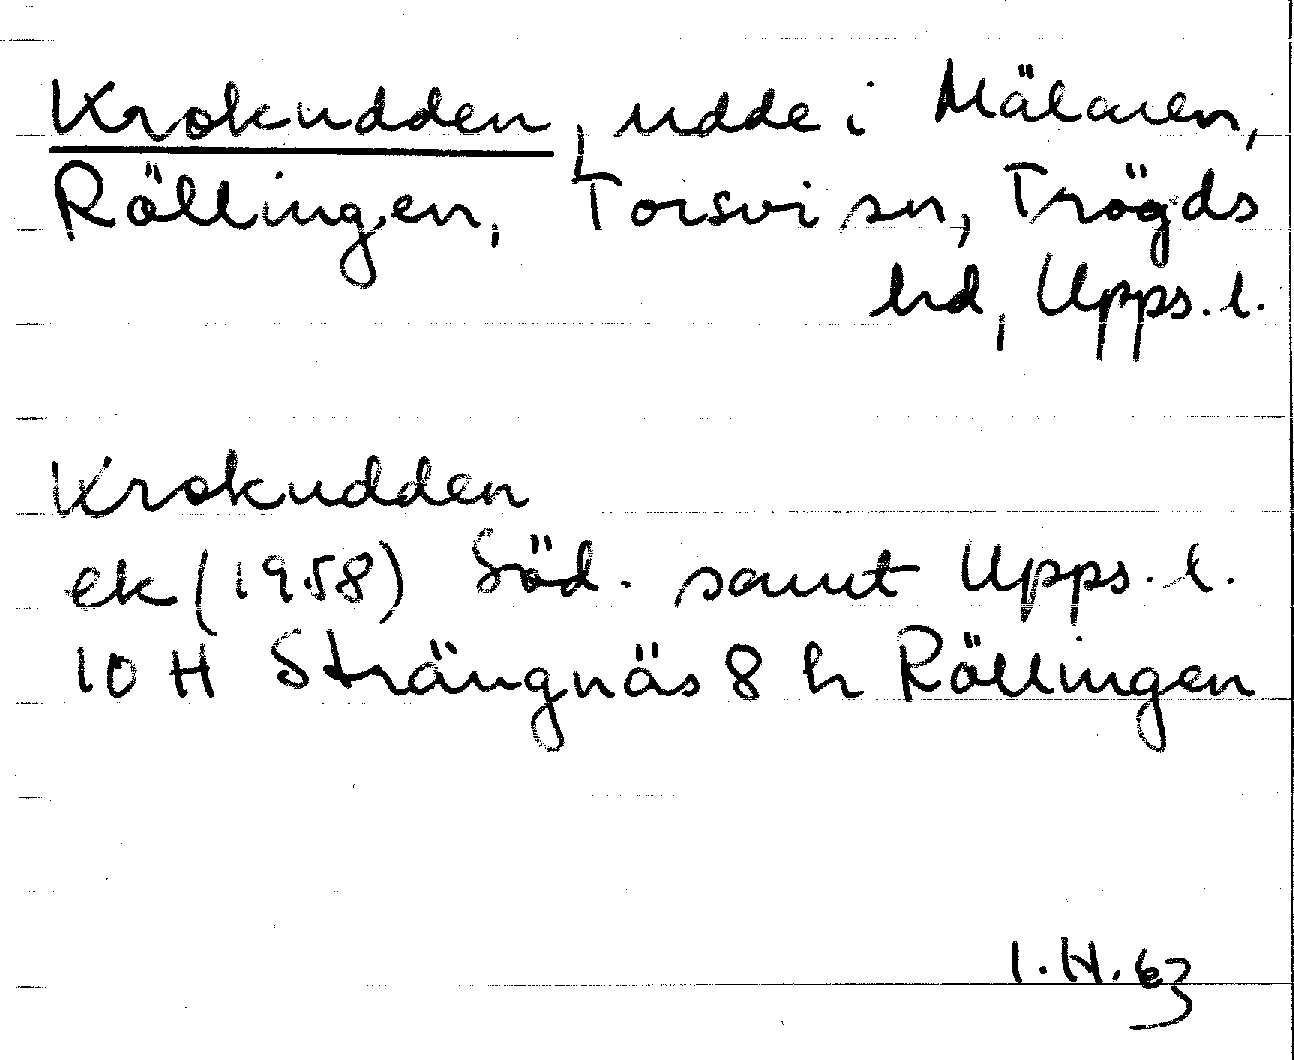 Krokudden, udde i Mälaren,
Röllingen, Torsvi sn, Trögds
hd, Upps. l.
Krokudden
ek (1958) Söd. samt Upps. l.
10 H Strängnäs 8 h Röllingen
I.H. 63